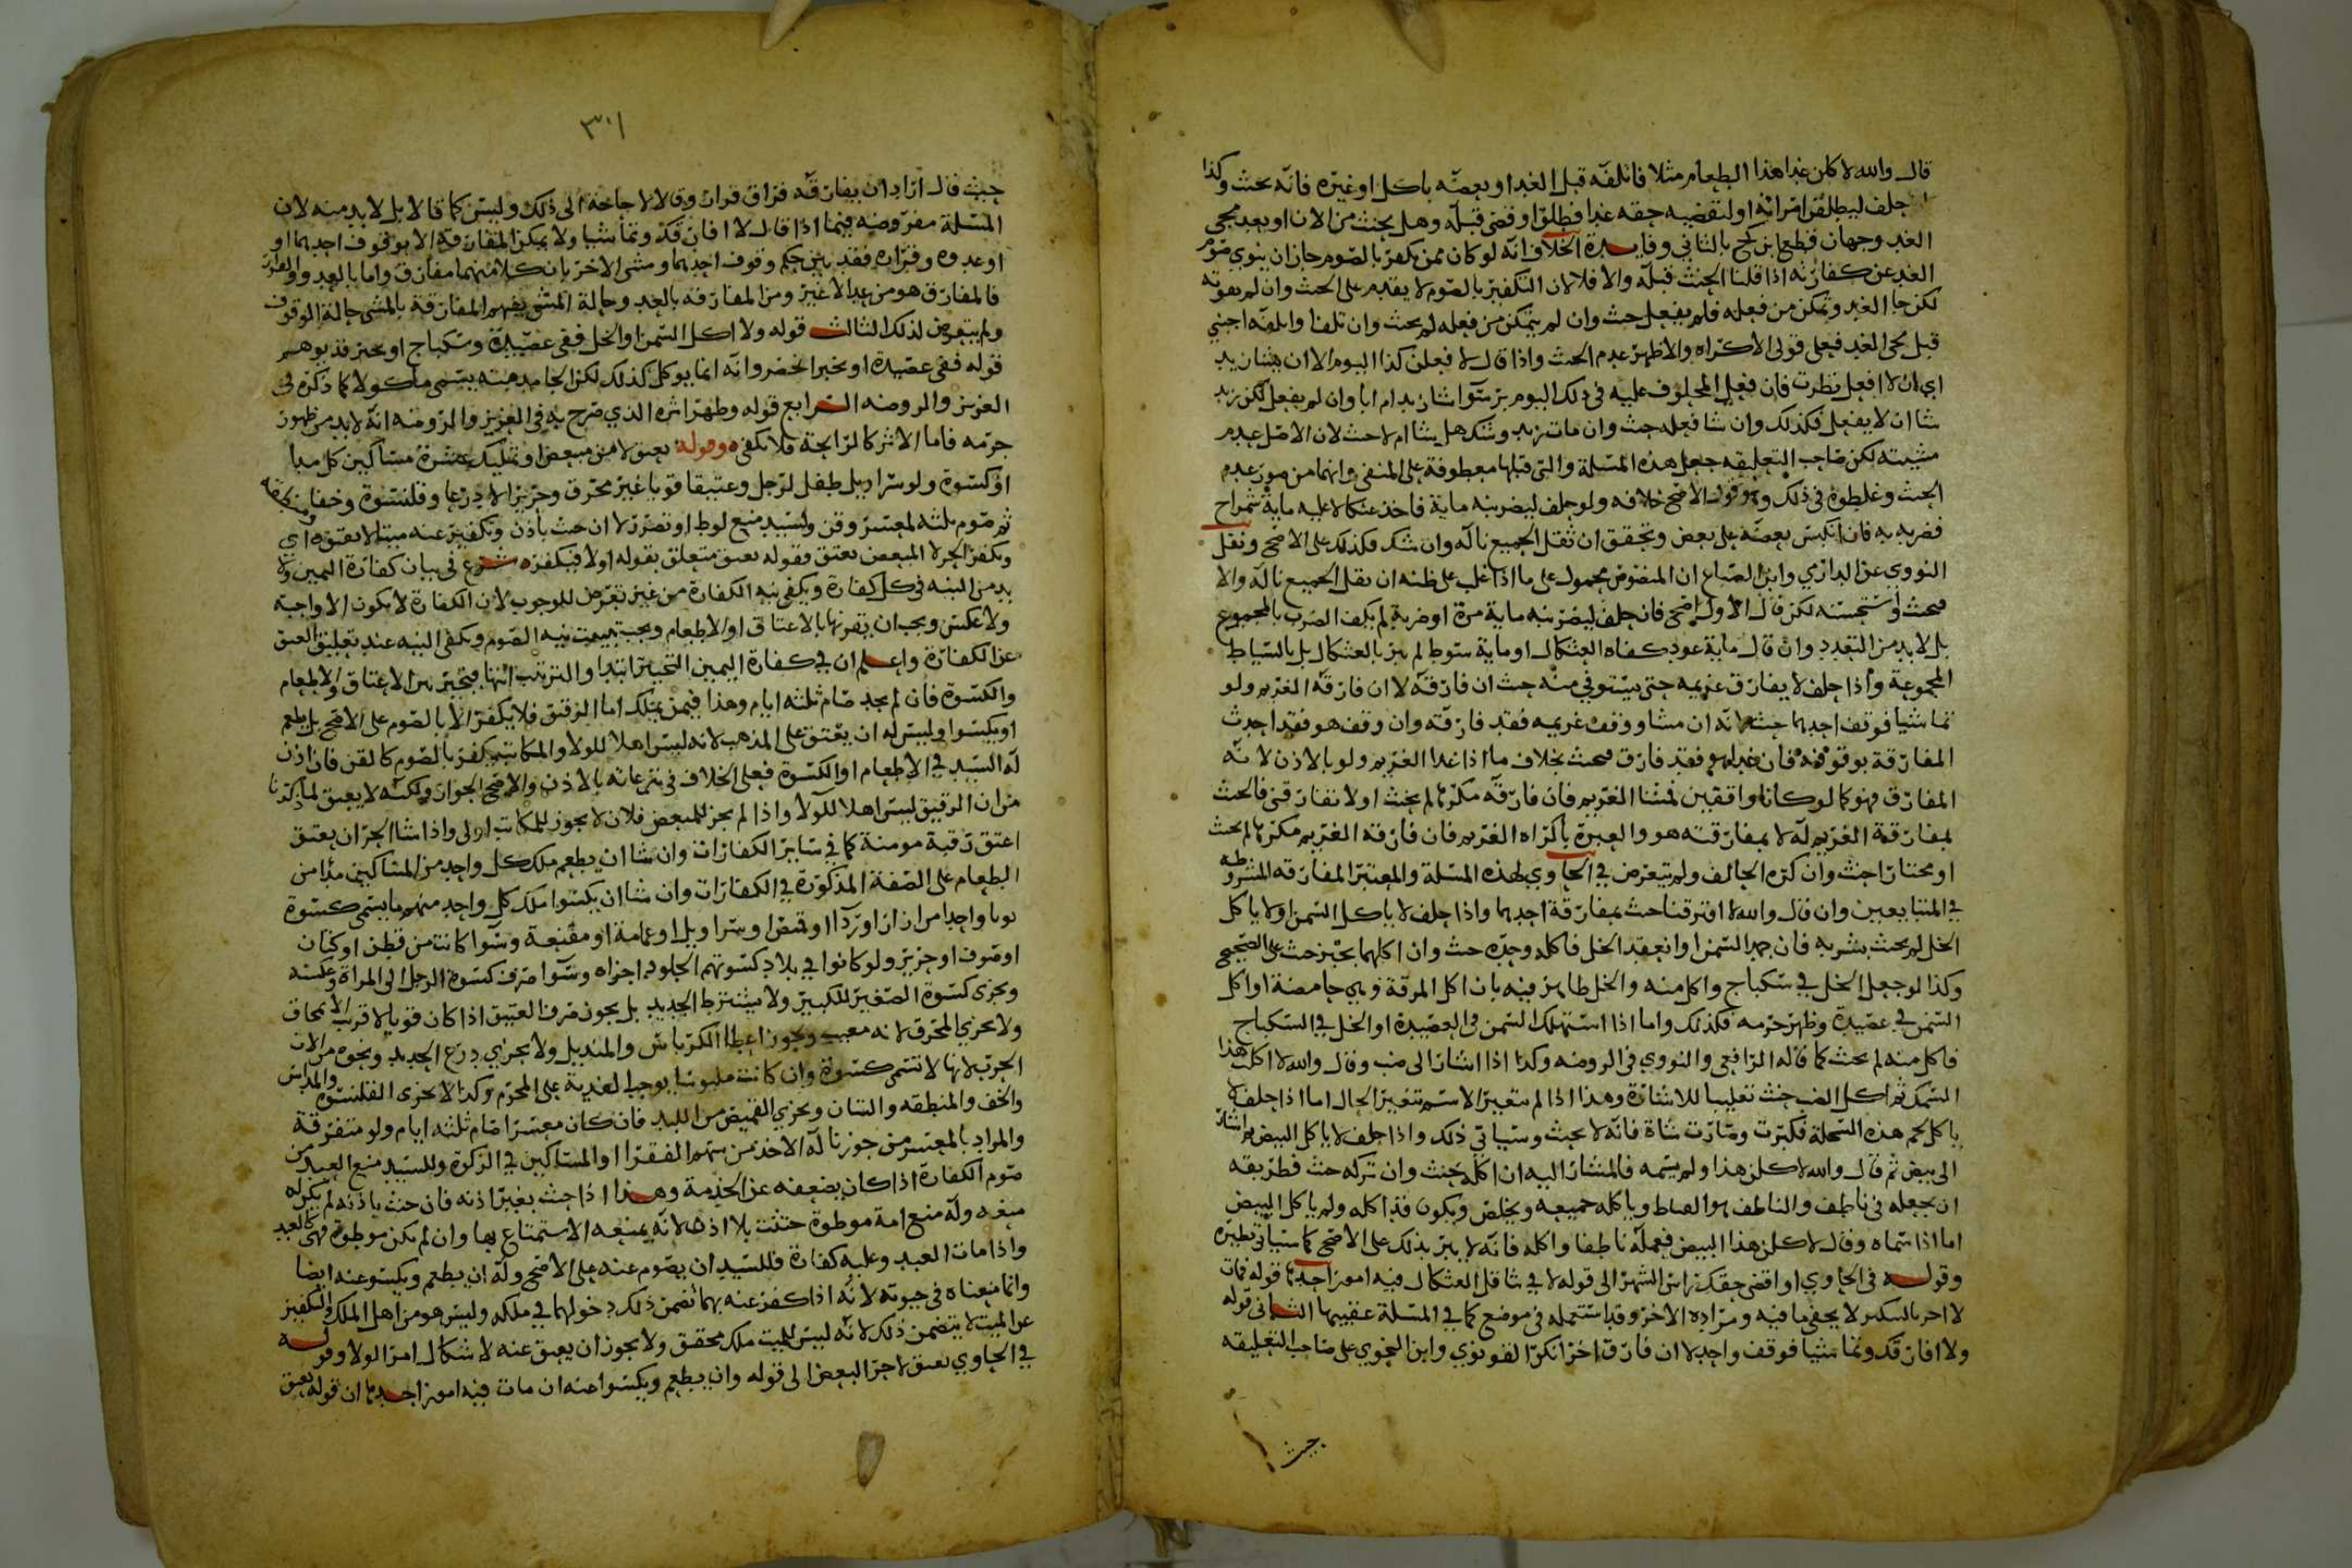 قال والله لاكلن غدا هذا الطعام مثلا فاتلفه قبل الغد او بعضه باكل او غيره فانه يحنث وكذا
حلف ليطلقن امراته او لنقضيه حقه غدا فطلق او قضى قبله وهل يحنث من الان او بعد مجي
الغد وجهان قطع ابن كج بالثاني وفايدة الخلاف انه لو كان ممن يكفر بالصوم جاز ان ينوي صوم
الغد عن كفارته اذا قلنا الحنث قبله والا فلا لان التكفير بالصوم لا يقدم على الحنث وان لم يفوته
لكن جا الغد وتمكن من فعله فلم يفعل حنث وان لم يتمكن من فعله لم يحنث وان تلفا واتلفه اجنبي
قبل مجى الغد فعلى قولى الاكراه والاظهر عدم الحنث واذا قال لافعلن كذا اليوم الا ان يشا زيد
اي ان لا افعل نظرت فان فعل المحلوف عليه فى ذلك اليوم بر سوا شا زيد ام ابا وان لم يفعل لكن زيد
شا ان لا يفعل فكذلك وان شا فعله حنث وان مات زيد وشك هل شا ام لا حنث لان الاصل عدم
مشيته لكن صاحب التعليقه جعل هذه المسلة والتى قبلها معطوفة على المنفى وانهما من صور عدم
الحنث وغلطوه فى ذلك وهو قول الاصح خلافه ولو حلف ليضربنه ماية فاخذ عثكالا عليه ماية شمراخ
فضربه به فان انكبس بعضه على بعض وتحقق ان ثقل الجميع ناله وان شك فكذلك على الاصح ونقل
النووى عن الدارمي وابن الصباغ ان المنصوص محمول على ما اذا غلب على ظنه ان ثقل الجميع ناله والا
فيحنث واستحسنه لكن قال الاول اصح فان حلف ليضربنه ماية مرة او ضربة لم يكف الضرب بالمجموع
بل لا بد من التعدد وان قال ماية عود كفاه العثكال او ماية سوط لم يبر بالعثكال بل بالسياط
المجموعة واذا حلف لا يفارق غريمه حتى يستوفي منه حنث ان فارقه لا ان فارقه الغريم ولو
تماشيا فوقف احدهما حنث لانه ان مشا ووقف غريمه فقد فارقه وان وقف هو فقد احدث
المفارقة بوقوفه فان فقد فارق فيحنث بخلاف ما اذا غدا الغريم ولو بالاذن لانه
المفارق فهو كما لو كانا واقفين فمشا الغريم فان فارقه مكرها لم يحنث او لا تفارقني فالحنث
بمفارقة الغريم له لا بمفارقته هو والعبرة باكراه الغريم فان فارقه الغريم مكرها لم يحنث
او مختارا حنث وان كره الحالف ولم يتعرض في الحاوي لهذه المسلة والمعتبر المفارقه المشروطه
في المتبايعين وان قال والله لا افترقنا حنث بمفارقة احدهما واذا حلف لا ياكل السمن او لا ياكل
الخل لم يحنث بشربه فان جمد السمن او انعقد الخل فاكله وحده حنث وان اكلهما بخبز حنث على الصحيح
وكذا لو جعل الخل في سكباج واكل منه والخل ظاهر فيه بان اكل المرقة وهي حامضة او اكل
السمن في عصيدة وظهر جرمه فكذلك واما اذا استهلك السمن فى العصيدة او الخل في السكباج
فاكل منه لم يحنث كما قاله الرافعي والنووي فى الروضه وكذا اذا اشار الى ضب وقال والله لا اكلت هذا
السمك ثم اكل الضب حنث تغليبا للاشارة وهذا اذا لم يتغير الاسم بتغير الحال اما اذا حلف لا
ياكل لحم هذه السخلة فكبرت وصارت شاة فانه لا يحنث وسياتى ذلك واذا حلف لا ياكل البيض ثم اشار
الى بيض ثم قال والله لاكلن هذا ولم يسمه فالمشار اليه ان اكله حنث وان تركه حنث فطريقه
ان يجعله فى ناطف والناطف هو وياكله جميعه ويخلص ويكون قد اكله ولم ياكل البيض
اما اذا سماه وقال لاكلن هذا البيض فعمله ناطفا واكله فانه لا يبر بذلك على الاصح كما سياتى نظيره
وقوله فى الحاوي او اقضى حقك راس الشهر الى قوله لا في شا قل العثكال فيه امور احدها قوله فمات
لا اخر بالسكر لا يخفى ما فيه ومراده الاخر وقد استعمله فى موضع كما في المسلة عقيبها الثانى قوله
ولا افارقك وتماشيا فوقف واحد لا ان فارق اخر انكر القونوي وابن النحوي على صاحب التعليقه
حيث
٣٠١
حيث قال اراد ان يفارقه فراق فرار وقالا لا حاجة الى ذلك وليس كما قالا بل لا بد منه لان
المسلة مفروضه فيما اذا قال لا افارقك وتماشيا ولا يمكن المفارقة الا بوقوف احدهما او
او عدوه وفراره فقد بين حكم وقوف احدهما ومشى الاخر بان كلا منهما مفارق واما بالعدو والفرار
فالمفارق هو من عدا لا غير ومن المفارقه بالعدو حالة المشى يفهم المفارقة بالمشى حالة الوقوف
ولم يتعرض لذلك الثالث قوله ولا اكل السمن والخل ففى عصيدة وسكباج او بخبز قد يوهم
قوله ففى عصيدة او بخبز الحصر وانه انما يوكل كذلك لكن الجامد منه يسمى ماكولا كما ذكره فى
العزيز والروضه الرابع قوله وظهر اثره الذي صرح به فى العزيز والروضه انه لا بد من ظهور
جرمه فاما الاثر كالرائحة فلا تكفى وقوله بعتق لا من مبعض او تمليك عشرة مساكين كل مدا
او كسوة ولو سراويل طفل لرجل وعتيقا قويا غير محرق وحرير الا درعا وقلنسوة وخفا ومنطقه
ثم صوم ثلثه لمعسر وقن ولسيد منع لوطء او تضرر لا ان حنث باذن وتكفير عنه ميتا لا بعتق اي
ويكفر الحر لا المبعض بعتق فقوله بعتق متعلق بقوله اولا فيكفر شرع فى بيان كفارة اليمين ولا
بد من النيه فى كل كفارة ويكفى نيه الكفارة من غير تعرض للوجوب لان الكفارة لا يكون الا واجبة
ولا عكس ويجب ان يقرنها بالاعتاق او الاطعام ويجب تبييت نيه الصوم ويكفى النيه عند تعليق العتق
عن الكفارة واعلم ان في كفارة اليمين التخيير ابتدا والترتيب انتها فيتخير بين الاعتاق والاطعام
والكسوة فان لم يجد صام ثلثه ايام وهذا فيمن يملك اما الرقيق فلا يكفر الا بالصوم على الاصح بل يطعم
او يكسوا وليس له ان يعتق على المذهب لانه ليس اهلا للولا والمكاتب يكفر بالصوم كالقن فان اذن
له السيد في الاطعام او الكسوة فعلى الخلاف فى تبرعاته بالاذن والاصح الجواز ولكنه لا يعتق لما ذكرنا
من ان الرقيق ليس اهلا للولا واذا لم يجز للمبعض فلان لا يجوز للمكاتب اولى واذا شا الحر ان يعتق
اعتق رقبة مومنة كما في ساير الكفارات وان شا ان يطعم ملك كل واحد من المساكين مدا من
الطعام على الصفة المذكورة في الكفارات وان شا ان يكسوا ملك كل واحد منهم ما يسمى كسوة
ثوبا واحدا من ازار او ردا او قميص او سراويل او عمامة او مقنعة وسوا كانت من قطن او كتان
او صوف او حرير ولو كانوا في بلاد كسوتهم الجلود اجزاه وسوا صرف كسوة الرجل الى المراة وعكسه
ويجزى كسوة الصغير للكبير ولا يشترط الجديد بل يجوز صرف العتيق اذا كان قويا لا قريب الانمحاق
ولا يجزي المخرق لانه معيب ويجوز اعطا الكرباس والمنديل ولا يجزي درع الحديد ونحوه من الات
الحرب لانها لا تسمى كسوة وان كانت ملبوسا يوجب الفدية على المحرم وكذا لا يجزى القلنسوه والمداس
والخف والمنطقه والتبان ويجزي القميص من اللبد فان كان معسرا صام ثلثه ايام ولو متفرقة
والمراد بالمعسر من جوزنا له الاخذ من سهم الفقرا او المساكين في الزكوة وللسيد منع العبد من
صوم الكفارة اذا كان يضعفه عن الخدمة وهذا اذا حنث بغير اذنه فان حنث باذنه لم يكن له
منعه وله منع امة موطوة حنثت بلا اذن لانه يمنعه الاستمتاع بها وان لم يكن موطوة فهى كالعبد
واذا مات العبد وعليه كفارة فللسيد ان يصوم عنه على الاصح وله ان يطعم ويكسو عنه ايضا
وانما منعناه فى حيوته لانه اذا كفر عنه بهما تضمن ذلك دخولهما في ملكه وليس هو من اهل الملك والتكفير
عن الميت لا يتضمن ذلك لانه ليس للميت ملك محقق ولا يجوز ان يعتق عنه لاشكال امر الولا وقوله
في الحاوي بعتق لا حر البعض الى قوله وان يطعم ويكسوا عنه ان مات فيه امور احدها ان قوله بعتق